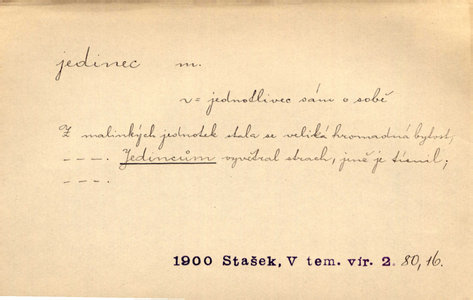 jedinec m.
v = jednotlivec sám o sobě
Z malinkých jednotek stala se veliká hromadná bytost,
---. Jedincům vyvětral strach, jenž je tísnil;
---.
1900 Stašek, V tem. vír. 2. 80, 16.